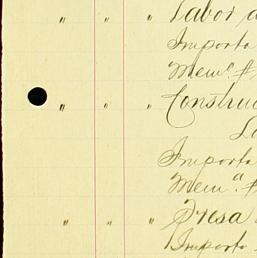 " " " Labor a
Importa
Mema. #
" " " Construc
La
Importa
Mema. #
" " " Presa
Importa